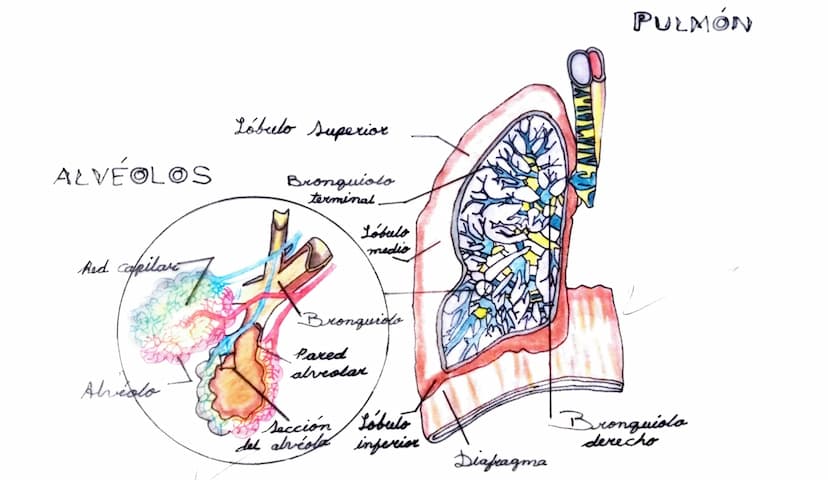 PULMÓN
Lóbulo Superior
ALVÉOLOS
Bronquiolo
terminal
Lóbulo
medio
Red capilar
Bronquiolo
Pared
alveolar
Alvéolo
Sección
del alvéola
Lóbulo
inferior
Bronquiolo
derecho
Diafragma